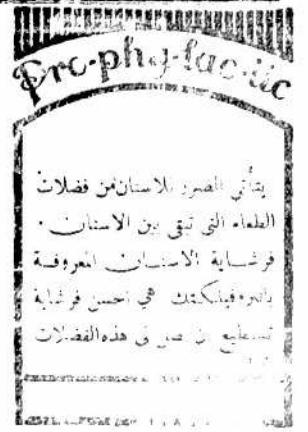 Pro-phy-lac-tic
يتأتى الضرر للاسنان من فضلات
الطعام التي تبقى بين الاسنان .
فرشاية الاسنان المعروفة
هي احسن فرشاية
تستطيع ان في هذه الفضلات